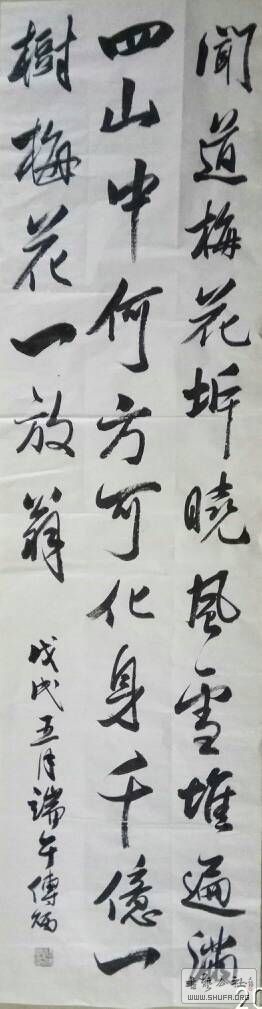 聞道梅花坼曉風雪堆遍滿
四山中何方可化身千億一
樹梅花一放翁
戊戌五月端午傅炳
WWW.SHUFA.COM